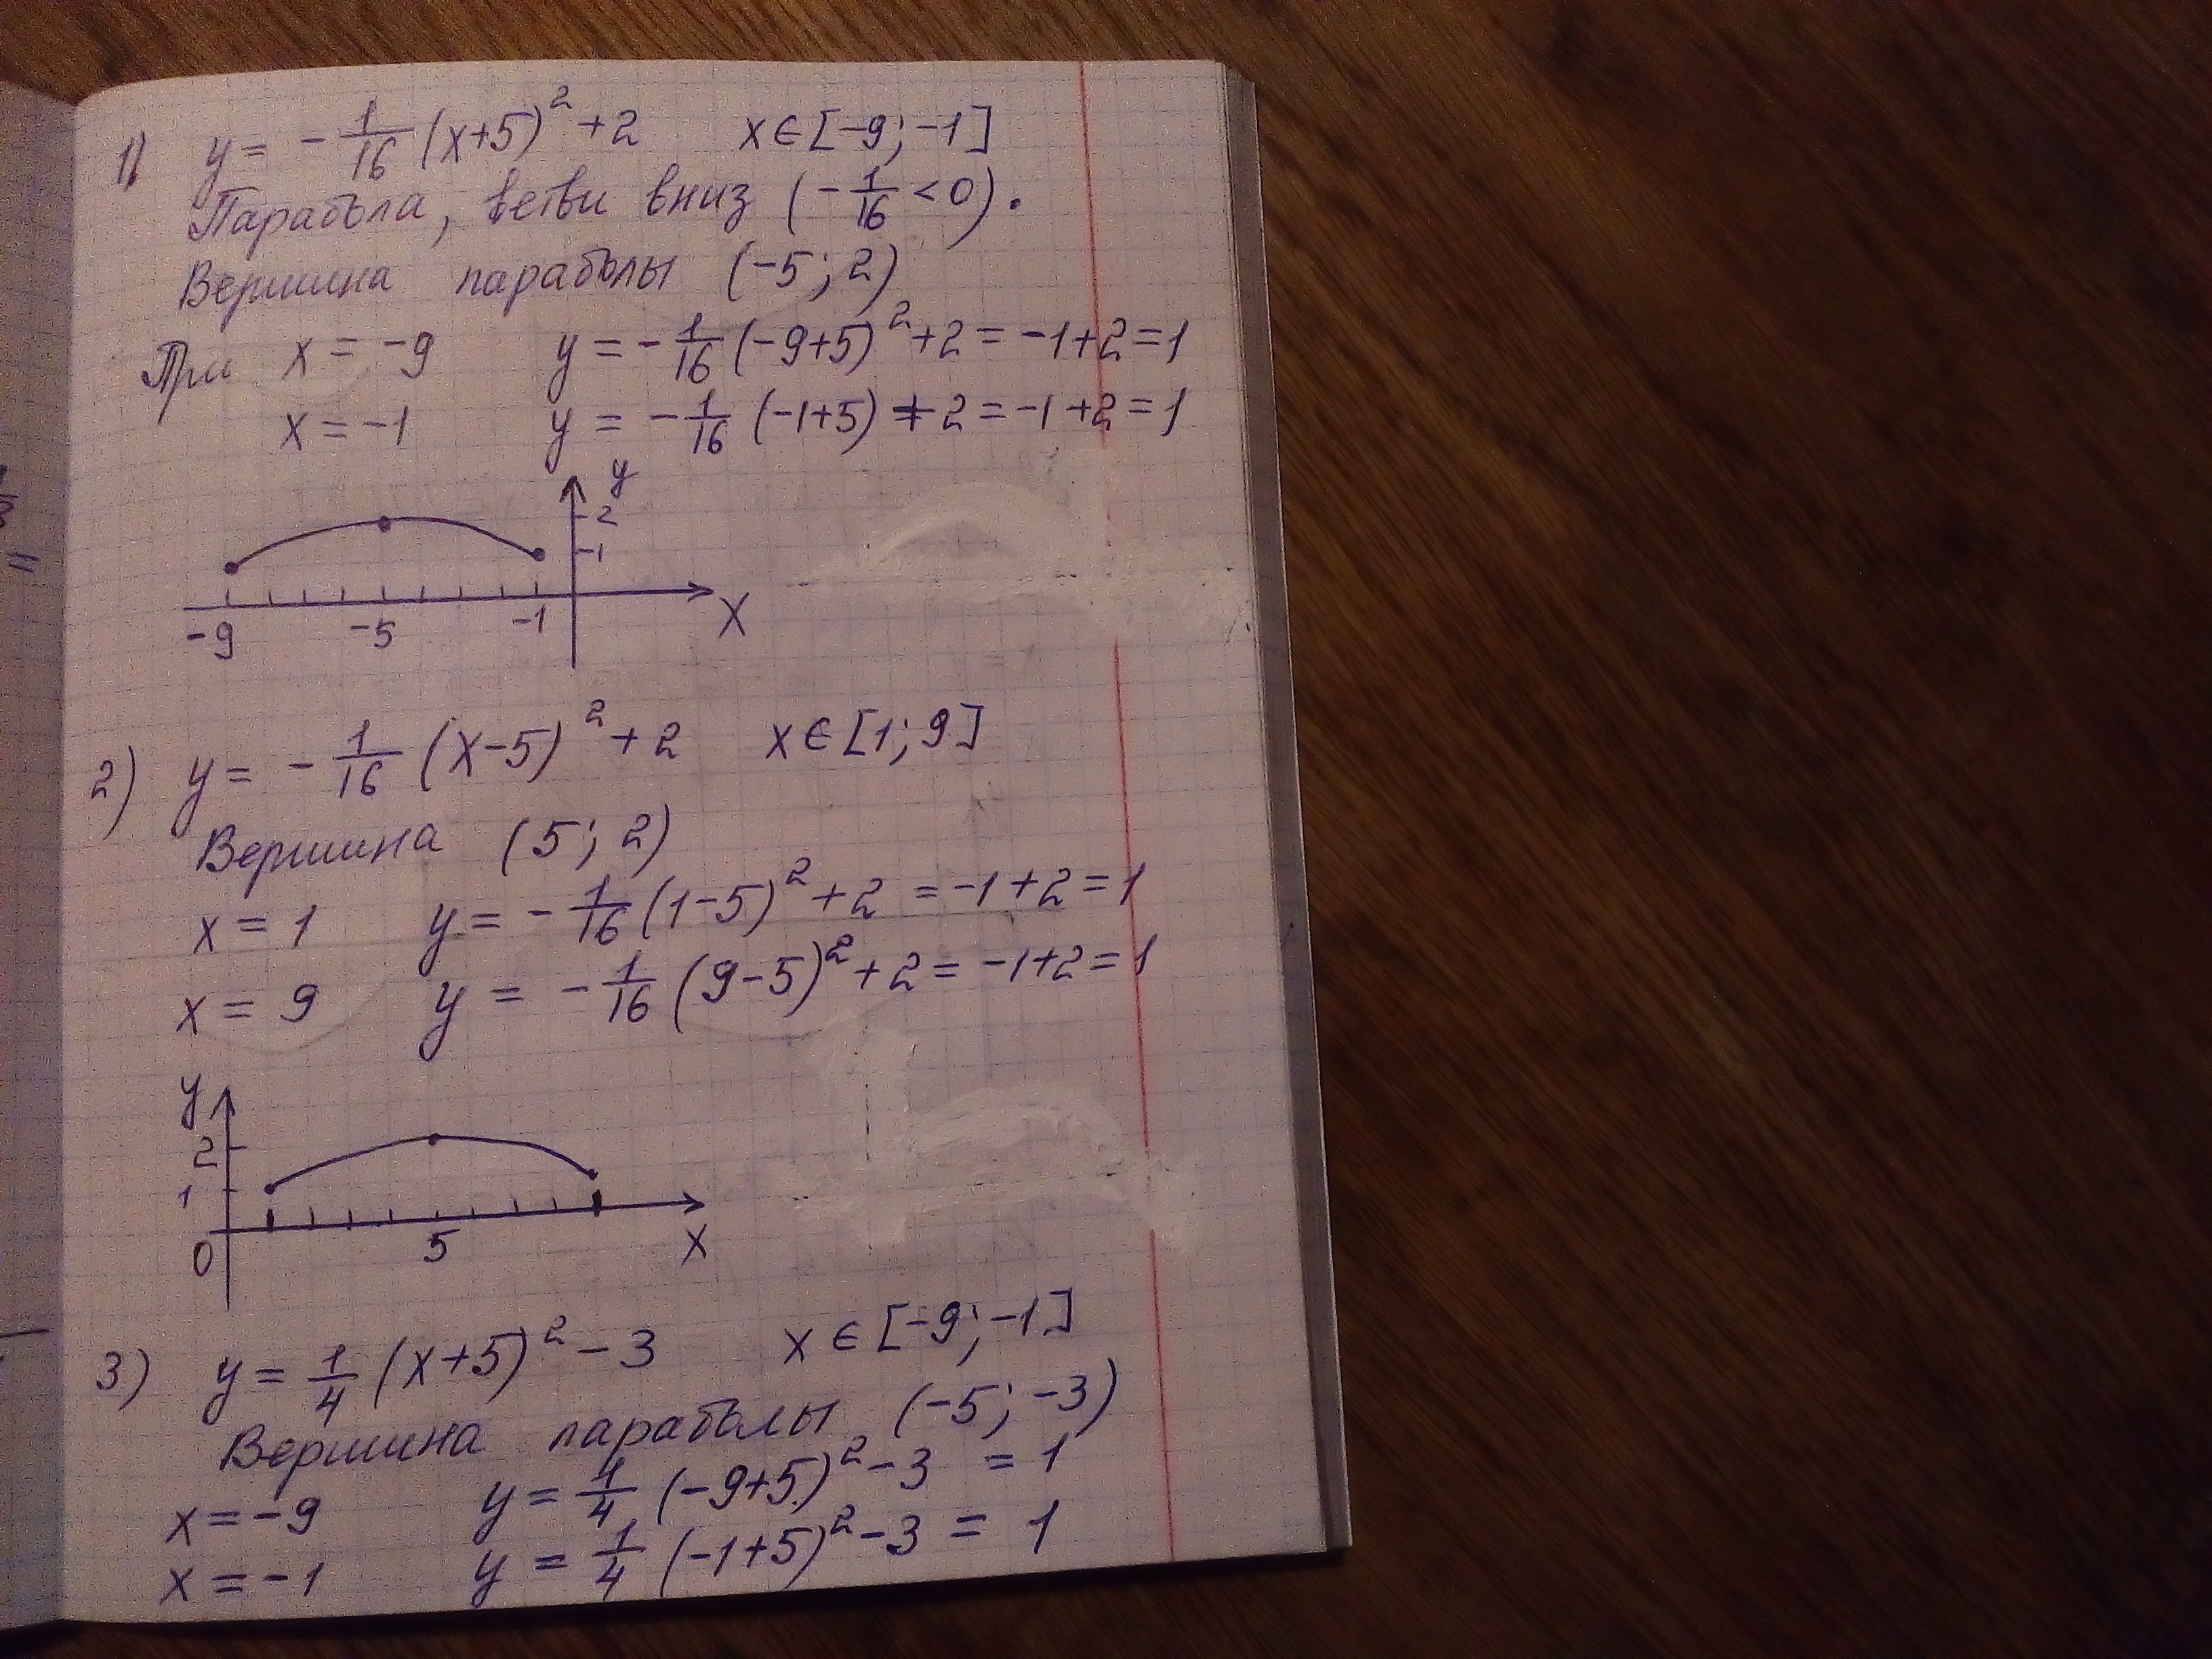 1) y = -1/16 (x+5)² + 2 x ∈ [-9; -1]
Парабола, ветви вниз (-1/16 < 0).
Вершина параболы (-5; 2)
При x = -9 y = -1/16 (-9+5)² + 2 = -1+2 = 1
x = -1 y = -1/16 (-1+5) + 2 = -1+2 = 1
y
2
1
-9 -5 -1 X
2) y = -1/16 (x-5)² + 2 x ∈ [1; 9]
Вершина (5; 2)
x = 1 y = -1/16 (1-5)² + 2 = -1+2 = 1
x = 9 y = -1/16 (9-5)² + 2 = -1+2 = 1
y
2
1
0 5 X
3) y = 1/4 (x+5)² - 3 x ∈ [-9; -1]
Вершина параболы (-5; -3)
x = -9 y = 1/4 (-9+5)² - 3 = 1
x = -1 y = 1/4 (-1+5)² - 3 = 1